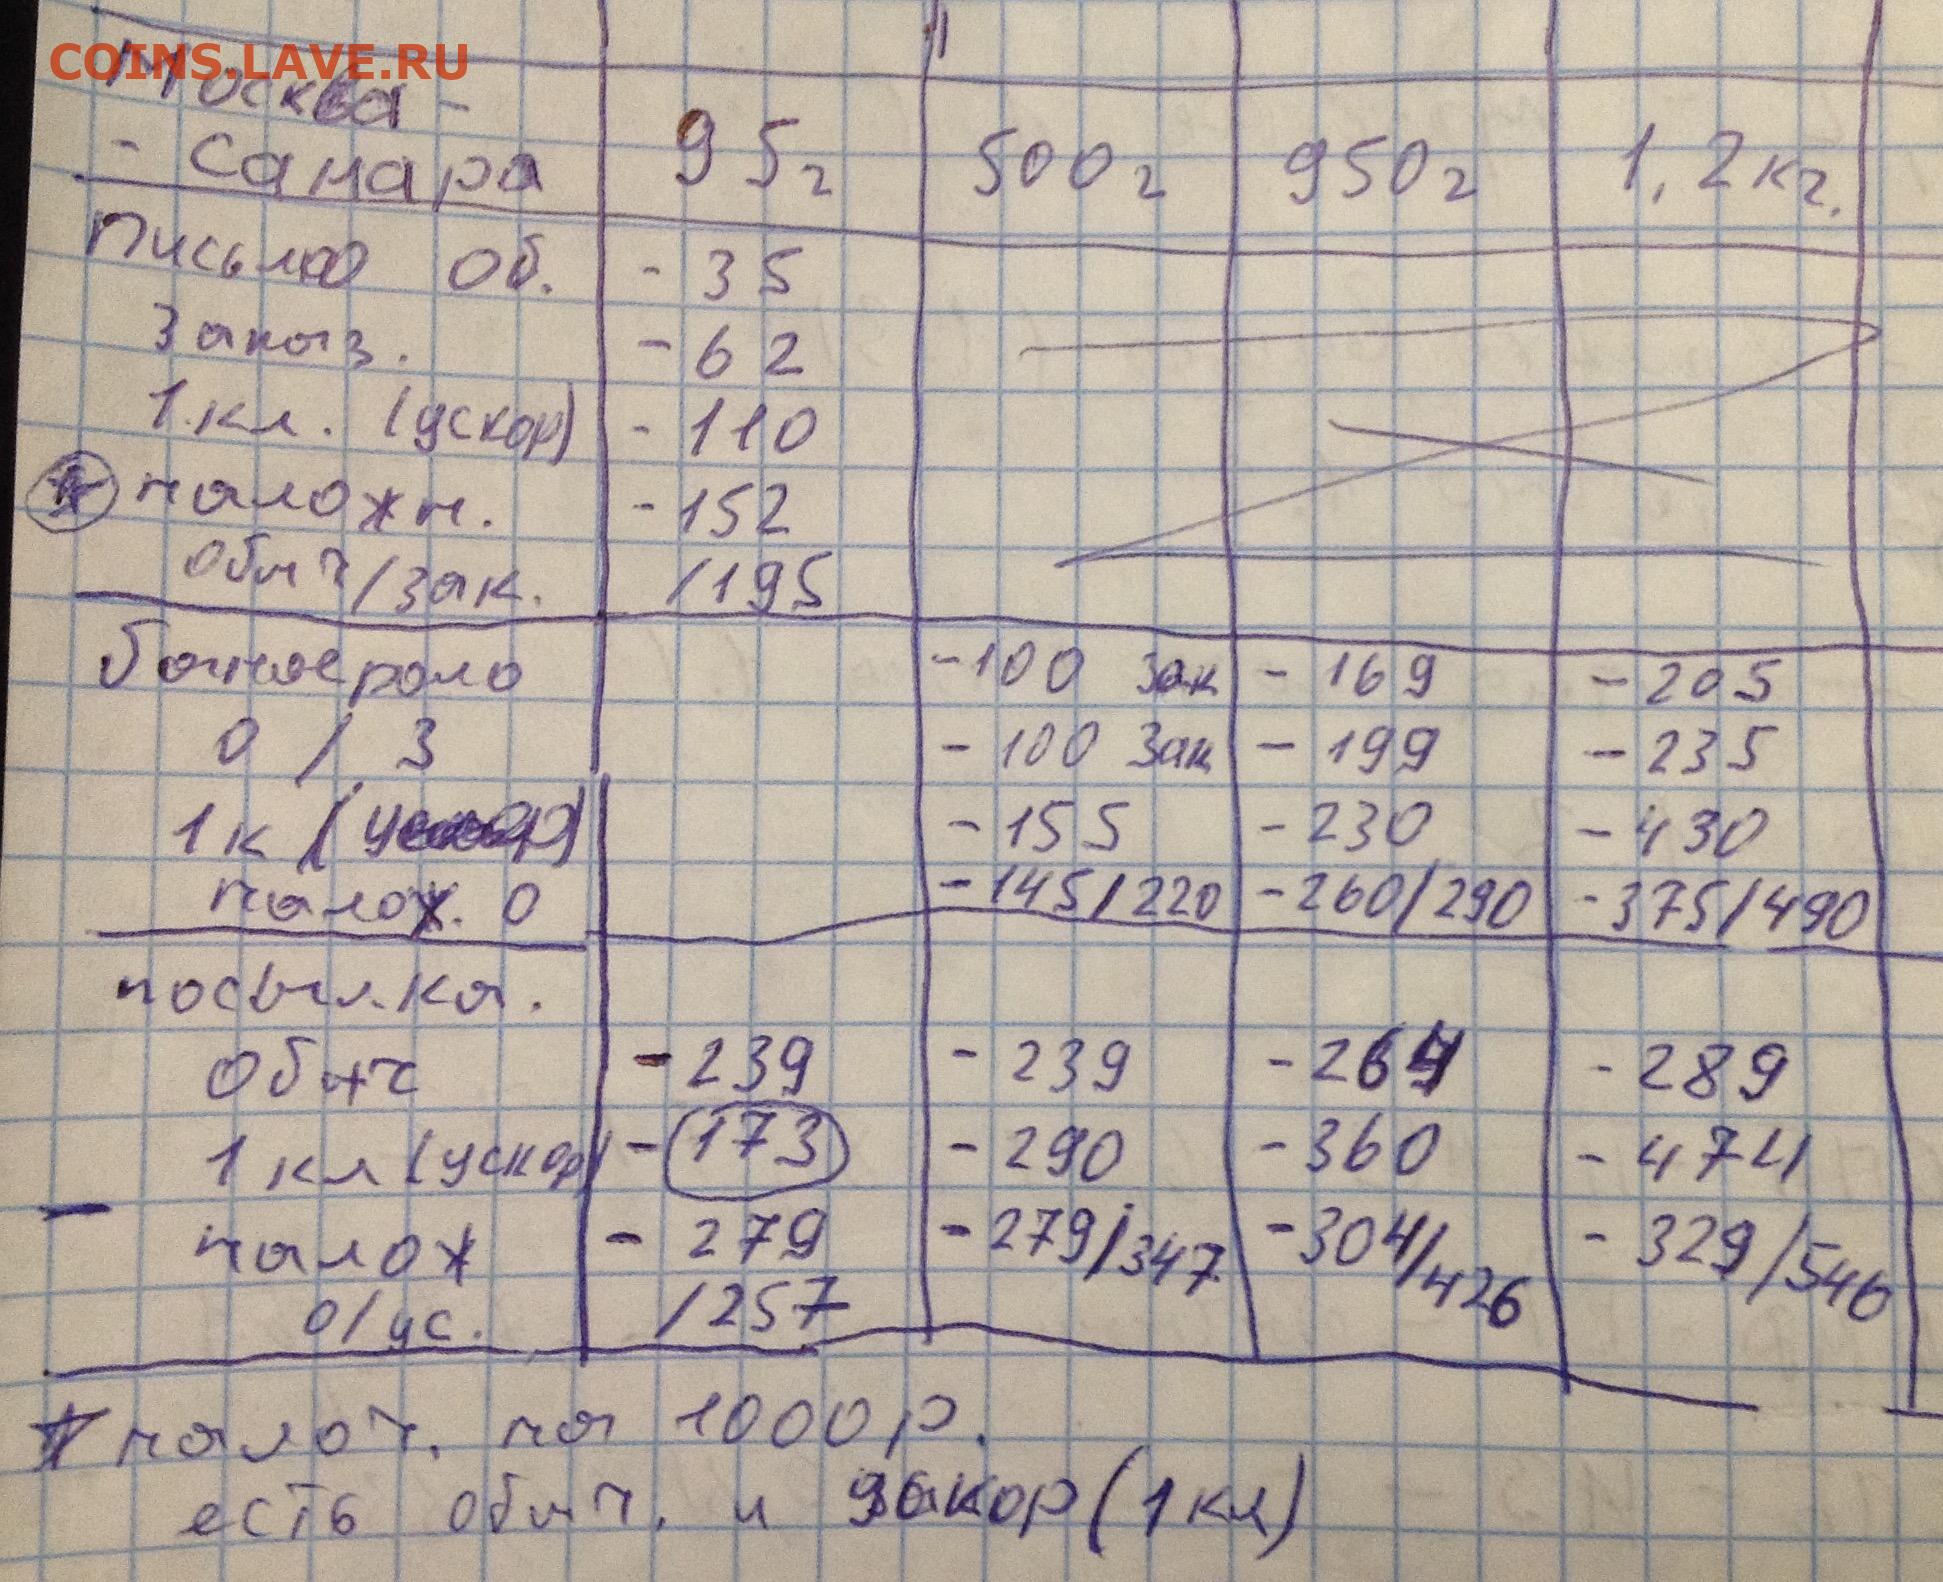 COINS.LAVE.RU
Москва -
- Самара 95г 500г 950г 1,2кг.
Письмо Об. - 35
Заказ. - 62
1.кл. (ускор) - 110
наложн. - 152
Обыч/зак. /195
бандероль - 100 Зак - 169 - 205
О / З - 100 Зак - 199 - 235
1к (ускор) - 155 - 230 - 430
налож. О - 145/220 - 260/290 - 375/490
посылка.
Обыч - 239 - 239 - 264 - 289
1 кл (ускор) - 173 - 290 - 360 - 474
налож - 279 - 279/347 - 304/426 - 329/546
о/ус. /257
* налож. на 1000р.
есть обыч. и (1кл)